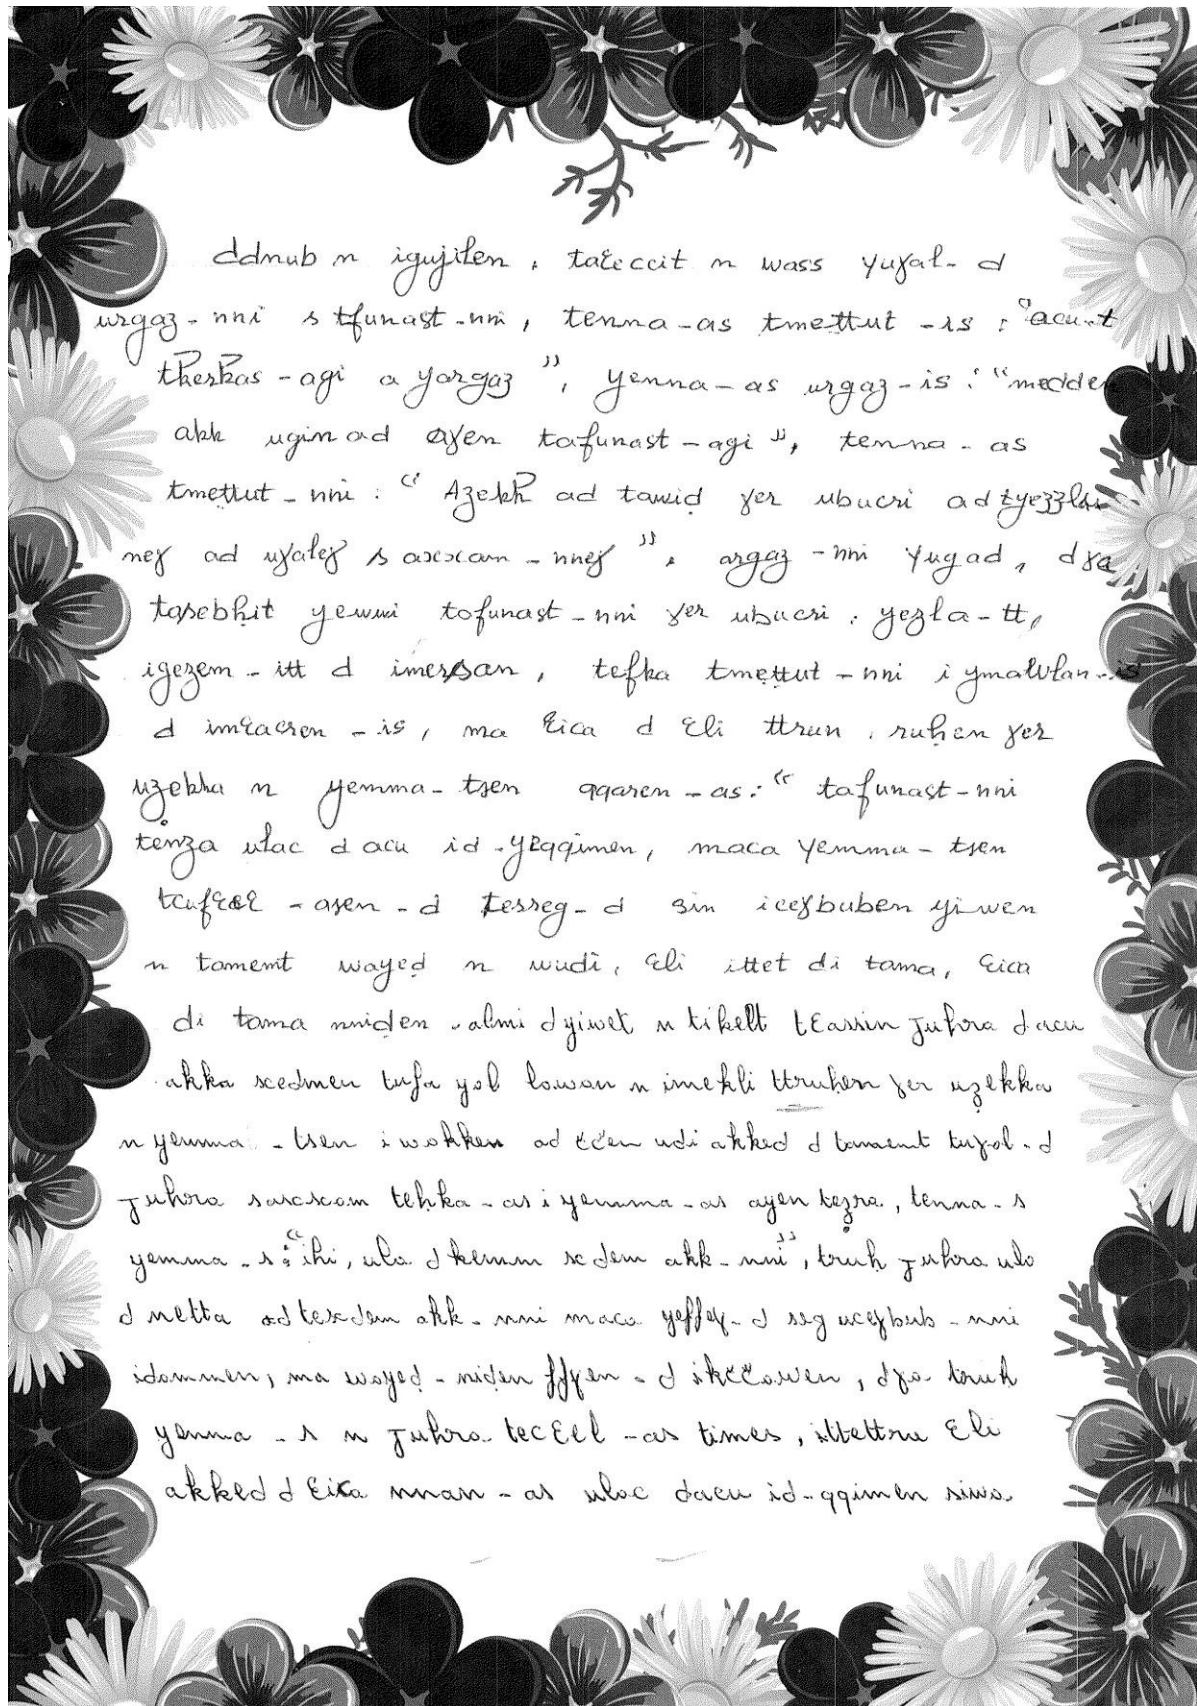 ddnub n igujilen, taɛeccit n wass yuɣal-d
urgaz-nni s tfunast-nni, tenna-as tmettut-is : "acu-t
tkerkas-agi a yargaz", yenna-as urgaz-is : "medden
akk ugin ad aɣen tafunast-agi", tenna-as
tmeṭṭut-nni : " Aẓekk ad tawiḍ ɣer ubucri ad
neɣ ad uɣaleɣ s axxam-nneɣ". argaz-nni yugad, dɣa
taṣebḥit yewwi tafunast-nni ɣer ubucri. yezla-tt,
igezem-itt d imerṣan, tefka tmeṭṭut-nni i ymawlan-is
d imɛacren-is, ma Ɛica d Ɛli ttrun. ruḥen ɣer
uẓekka n yemma-tsen qqaren-as: " tafunast-nni
tenẓa ulac d acu id-yeqqimen, maca yemma-tsen
-asen-d tesseg-d sin iceɣbuben yiwen
n tament wayeḍ n wudi, Ɛli ittet di tama, Ɛica
di tama nniḍen. almi d yiwet n tikelt tɛassin Juhra d acu
akka xedmen tufa yal lawan n imekli ttruḥen ɣer uẓekka
n yemma-tsen i wakken ad ččen udi akked d tament tuɣal-d
Juhra s axxam teḥka-as i yemma-as ayen teẓra, tenna-s
yemma-s : "ihi, ula d kemm xedem akk-nni", truḥ Juhra ula
d netta ad texdem akk-nni maca yeffeɣ-d seg uceɣbub-nni
idammen, ma wayeḍ-niḍen ffɣen-d ikččawen, dɣa truḥ
yemma-s n Juhra tecɛel-as times, ittettru Ɛli
akked d Ɛica nnan-as ulac dacu id-qqimen siwa.